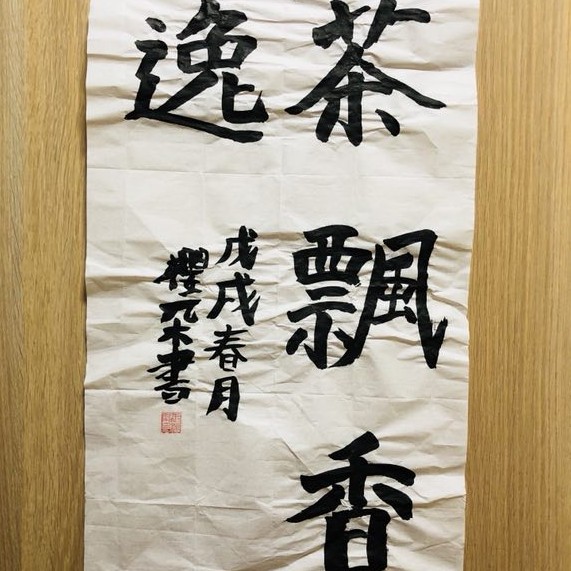 茶飄香
逸
戊戌春月
櫻元木書